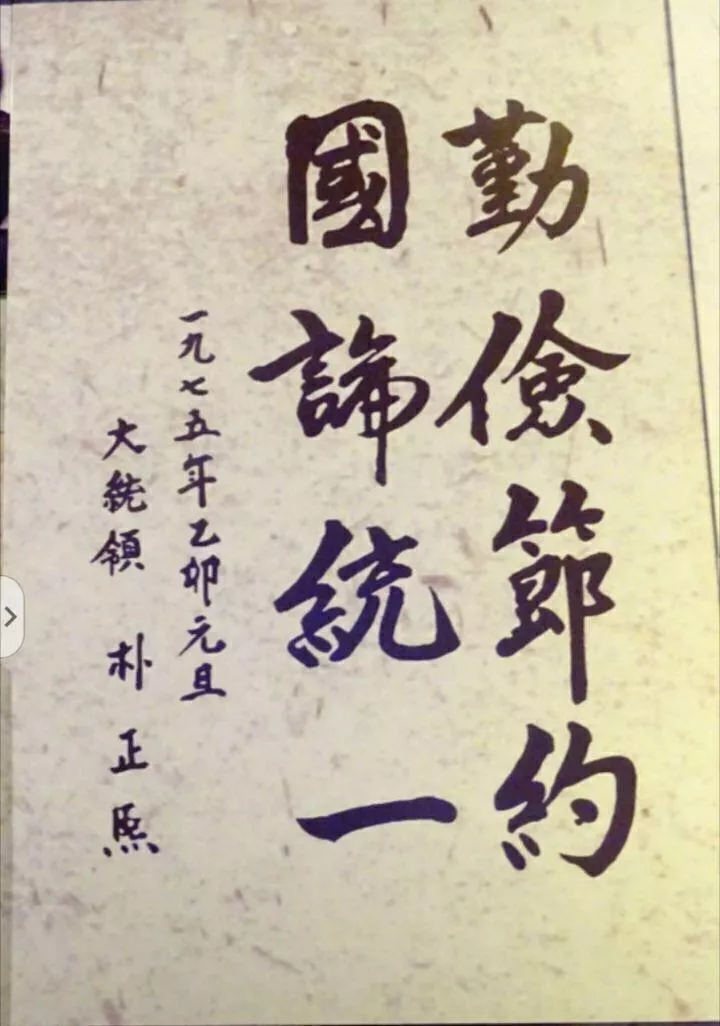 勤儉節約
國論統一
一九七五年乙卯元旦
大統領 朴正熙